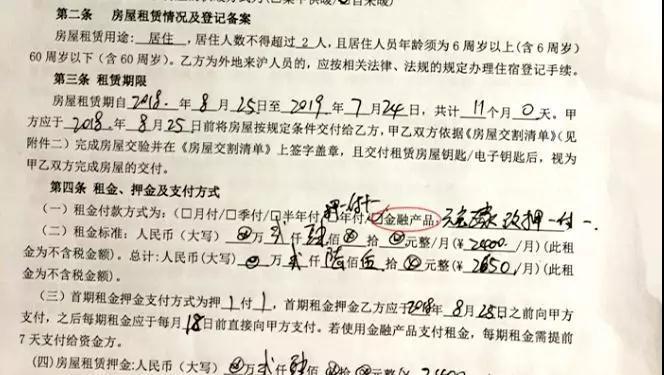 第二条 房屋租赁情况及登记备案
房屋租赁用途: 居住 ,居住人数不得超过 2 人,且居住人员年龄须为 6 周岁以上(含 6 周岁)
60 周岁以下(含 60 周岁)。乙方为外地来沪人员的,应按相关法律、法规的规定办理住宿登记手续。
第三条 租赁期限
房屋租赁期自 2018. 年 8 月 25 日至 2019 年 7 月 24 日,共计 11 个月 0 天。甲
方应于 2018 年 8 月 25 日前将房屋按规定条件交付给乙方,甲乙双方依据《房屋交割清单》(见
附件二)完成房屋交验并在《房屋交割清单》上签字盖章,且交付租赁房屋钥匙/电子钥匙后,视为
甲乙双方完成房屋的交付。
第四条 租金、押金及支付方式
押一付一
(一)租金付款方式为:(□月付/□季付/□半年付/□年付/☑金融产品) 改押一付一.
(二)租金标准:人民币(大写) 万 贰 仟 肆 佰 拾 元整/月(¥ 2400 /月)(此租
金为不含税金额)。总计:人民币(大写) 万 贰 仟 陆 佰 伍 拾 元整/月(¥ 2650 /月)(此租
金为不含税金额)。
(三)首期租金押金支付方式为押 1 付 1 ,首期租金押金乙方应于 2018 年 8 月 25 日之前向甲方
支付,之后每期租金应于每月 18 日前直接向甲方支付。若使用金融产品支付租金,每期租金需提前
7 天支付给资金方。
(四)房屋租赁押金:人民币(大写) 万 贰 仟 肆 佰 拾 元整(¥ 2400